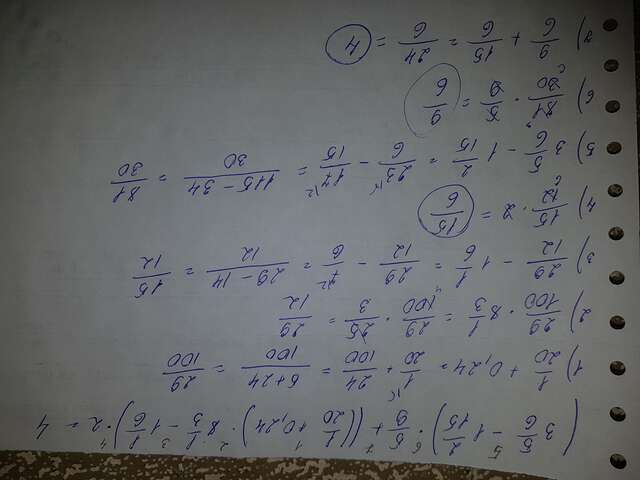 (3 5/6 - 1 2/15) · 5/9 + ((1/20 + 0,24) · 8 1/3 - 1 1/6) · 2 = 4
1) 1/20 + 0,24 = 1/20 + 24/100 = 5+24/100 = 29/100
2) 29/100 · 8 1/3 = 29/100 · 25/3 = 29/12
3) 29/12 - 1 1/6 = 29/12 - 7/6 = 29-14/12 = 15/12
4) 15/12 · 2 = 15/6
5) 3 5/6 - 1 2/15 = 23/6 - 17/15 = 115-34/30 = 81/30
6) 81/30 · 5/9 = 9/6
7) 9/6 + 15/6 = 24/6 = 4